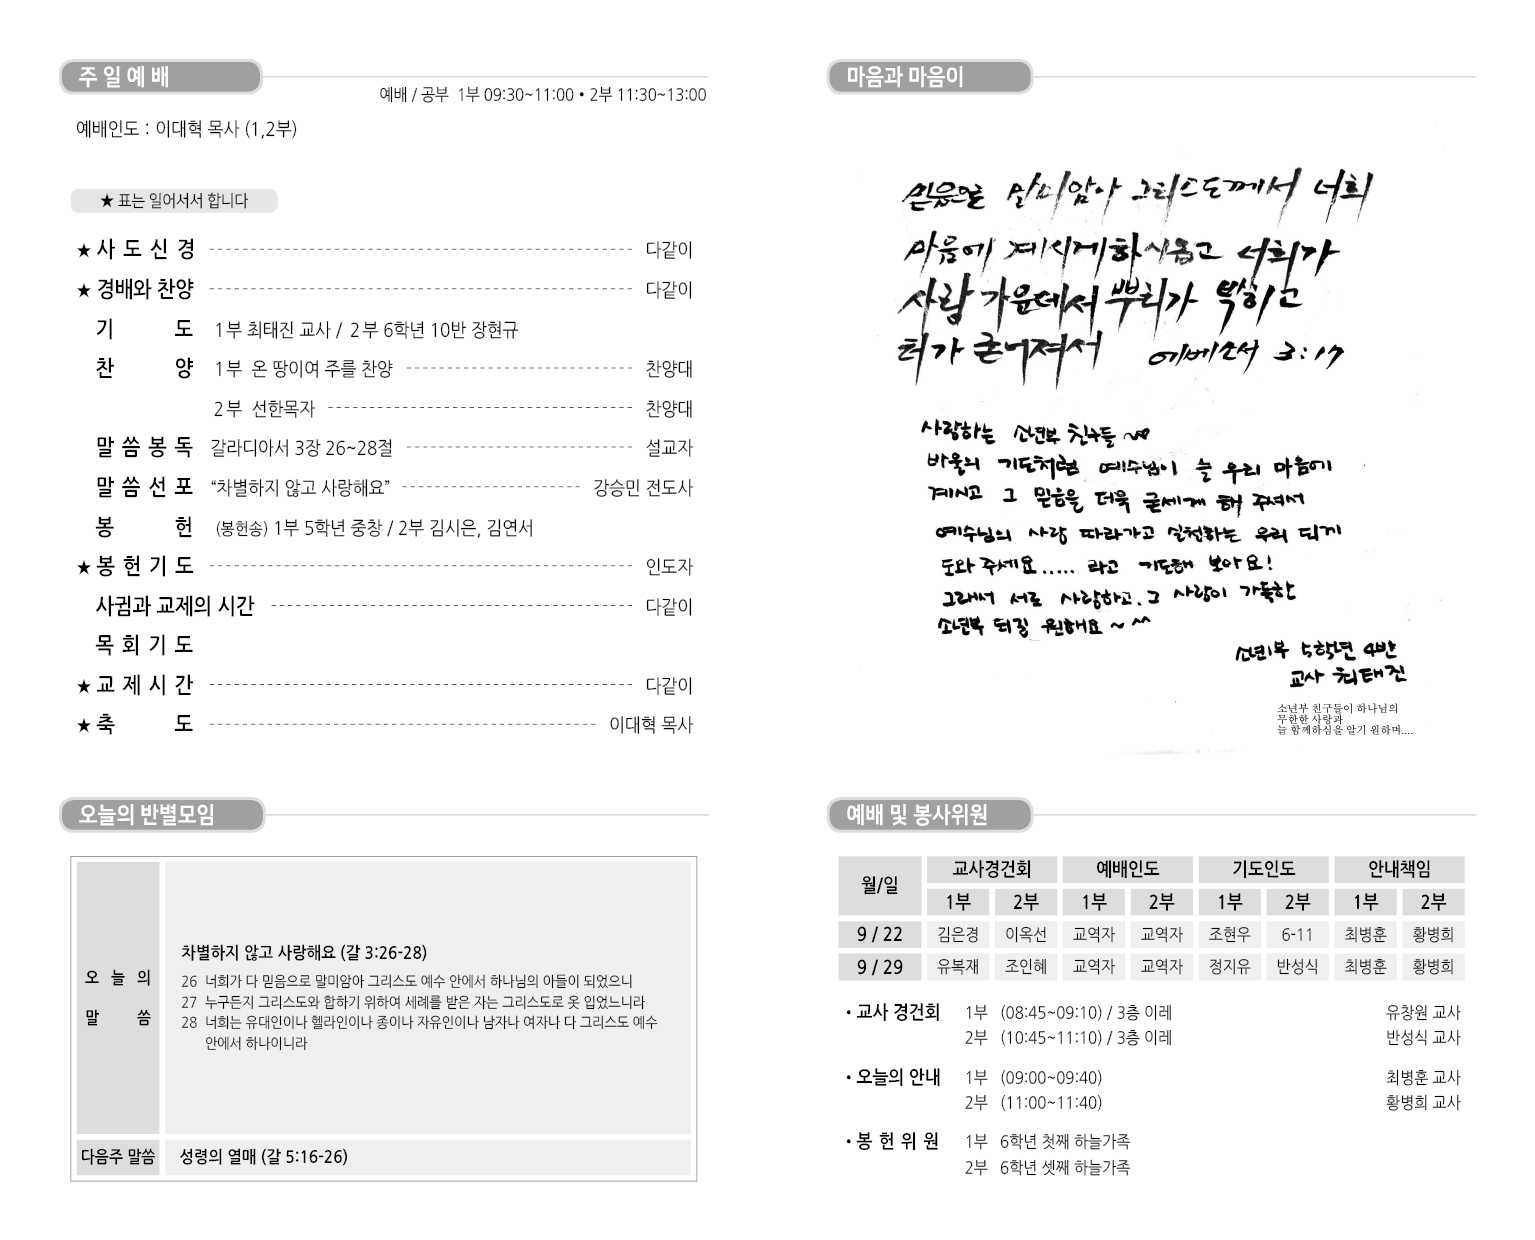 주 일 예 배
예배 / 공부 1부 09:30~11:00 • 2부 11:30~13:00
예배인도 : 이대혁 목사 (1,2부)
★ 표는 일어서서 합니다
★ 사 도 신 경 다같이
★ 경배와 찬양 다같이
기 도 1부 최태진 교사 / 2부 6학년 10반 장현규
찬 양 1부 온 땅이여 주를 찬양 찬양대
2부 선한목자 찬양대
말 씀 봉 독 갈라디아서 3장 26~28절 설교자
말 씀 선 포 “차별하지 않고 사랑해요” 강승민 전도사
봉 헌 (봉헌송) 1부 5학년 중창 / 2부 김시은, 김연서
★ 봉 헌 기 도 인도자
사귐과 교제의 시간 다같이
목 회 기 도
★ 교 제 시 간 다같이
★ 축 도 이대혁 목사
마음과 마음이
믿음으로 말미암아 그리스도께서 너희
마음에 계시게 하시옵고 너희가
사랑 가운데서 뿌리가 박히고
터가 굳어져서 에베소서 3:17
사랑하는 소년부 친구들 ~♡
바울의 기도처럼 예수님이 늘 우리 마음에
계시고 그 믿음을 더욱 굳세게 해 주셔서
예수님의 사랑 따라가고 실천하는 우리 되게
도와 주세요..... 라고 기도해 보아요!
그래서 서로 사랑하고, 그 사랑이 가득한
소년부 되길 원해요 ~ ^^
소년부 5학년 4반
교사 최태진
소년부 친구들이 하나님의
무한한 사랑과
늘 함께하심을 알기 원하며....
오늘의 반별모임
오 늘 의
말 씀
차별하지 않고 사랑해요 (갈 3:26-28)
26 너희가 다 믿음으로 말미암아 그리스도 예수 안에서 하나님의 아들이 되었으니
27 누구든지 그리스도와 합하기 위하여 세례를 받은 자는 그리스도로 옷 입었느니라
28 너희는 유대인이나 헬라인이나 종이나 자유인이나 남자나 여자나 다 그리스도 예수
안에서 하나이니라
다음주 말씀 성령의 열매 (갈 5:16-26)
예배 및 봉사위원
월/일 교사경건회 예배인도 기도인도 안내책임
1부 2부 1부 2부 1부 2부 1부 2부
9 / 22 김은경 이옥선 교역자 교역자 조현우 6-11 최병훈 황병희
9 / 29 유복재 조인혜 교역자 교역자 정지유 반성식 최병훈 황병희
• 교사 경건회 1부 (08:45~09:10) / 3층 이레 유창원 교사
2부 (10:45~11:10) / 3층 이레 반성식 교사
• 오늘의 안내 1부 (09:00~09:40) 최병훈 교사
2부 (11:00~11:40) 황병희 교사
• 봉 헌 위 원 1부 6학년 첫째 하늘가족
2부 6학년 셋째 하늘가족